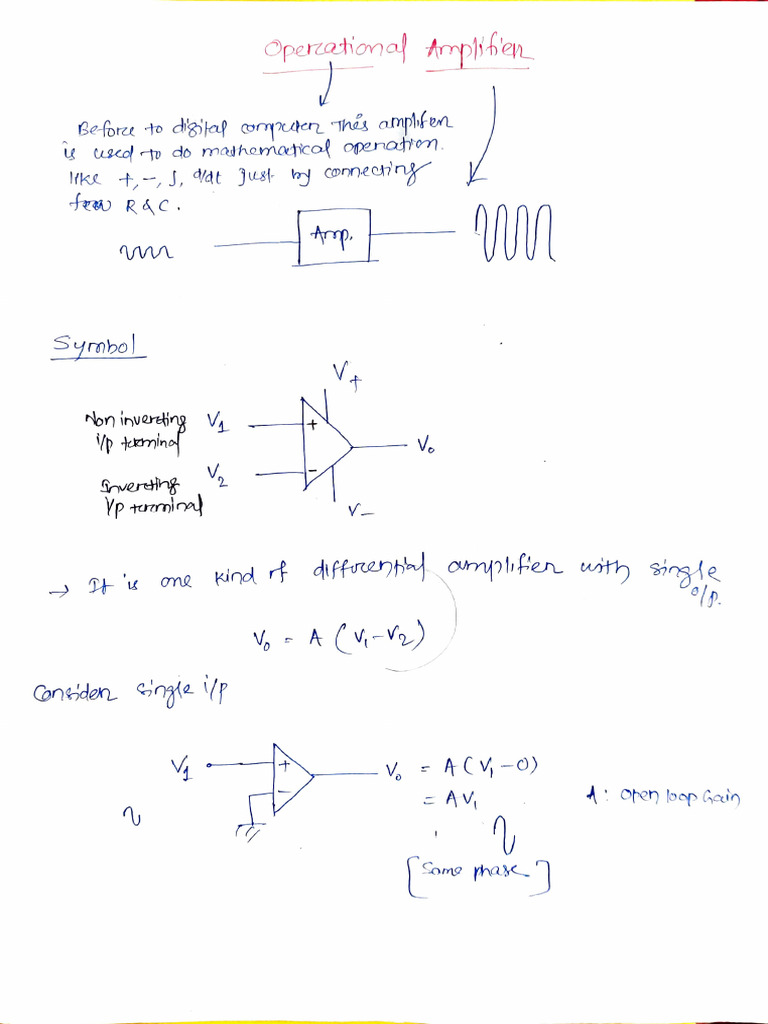 Operational Amplifier
Before to digital computer this amplifier
is used to do mathematical operation.
like +, -, ∫, d/dt just by connecting
few R & C.
Amp.
Symbol
V+
Non inverting V1
i/p terminal
+
V0
Inverting V2
i/p terminal
-
V-
→ It is one kind of differential amplifier with single
o/p.
V0 = A (V1-V2)
Consider single i/p
V1 + V0 = A (V1-0)
-
= AV1 A : Open loop Gain
[Same phase]